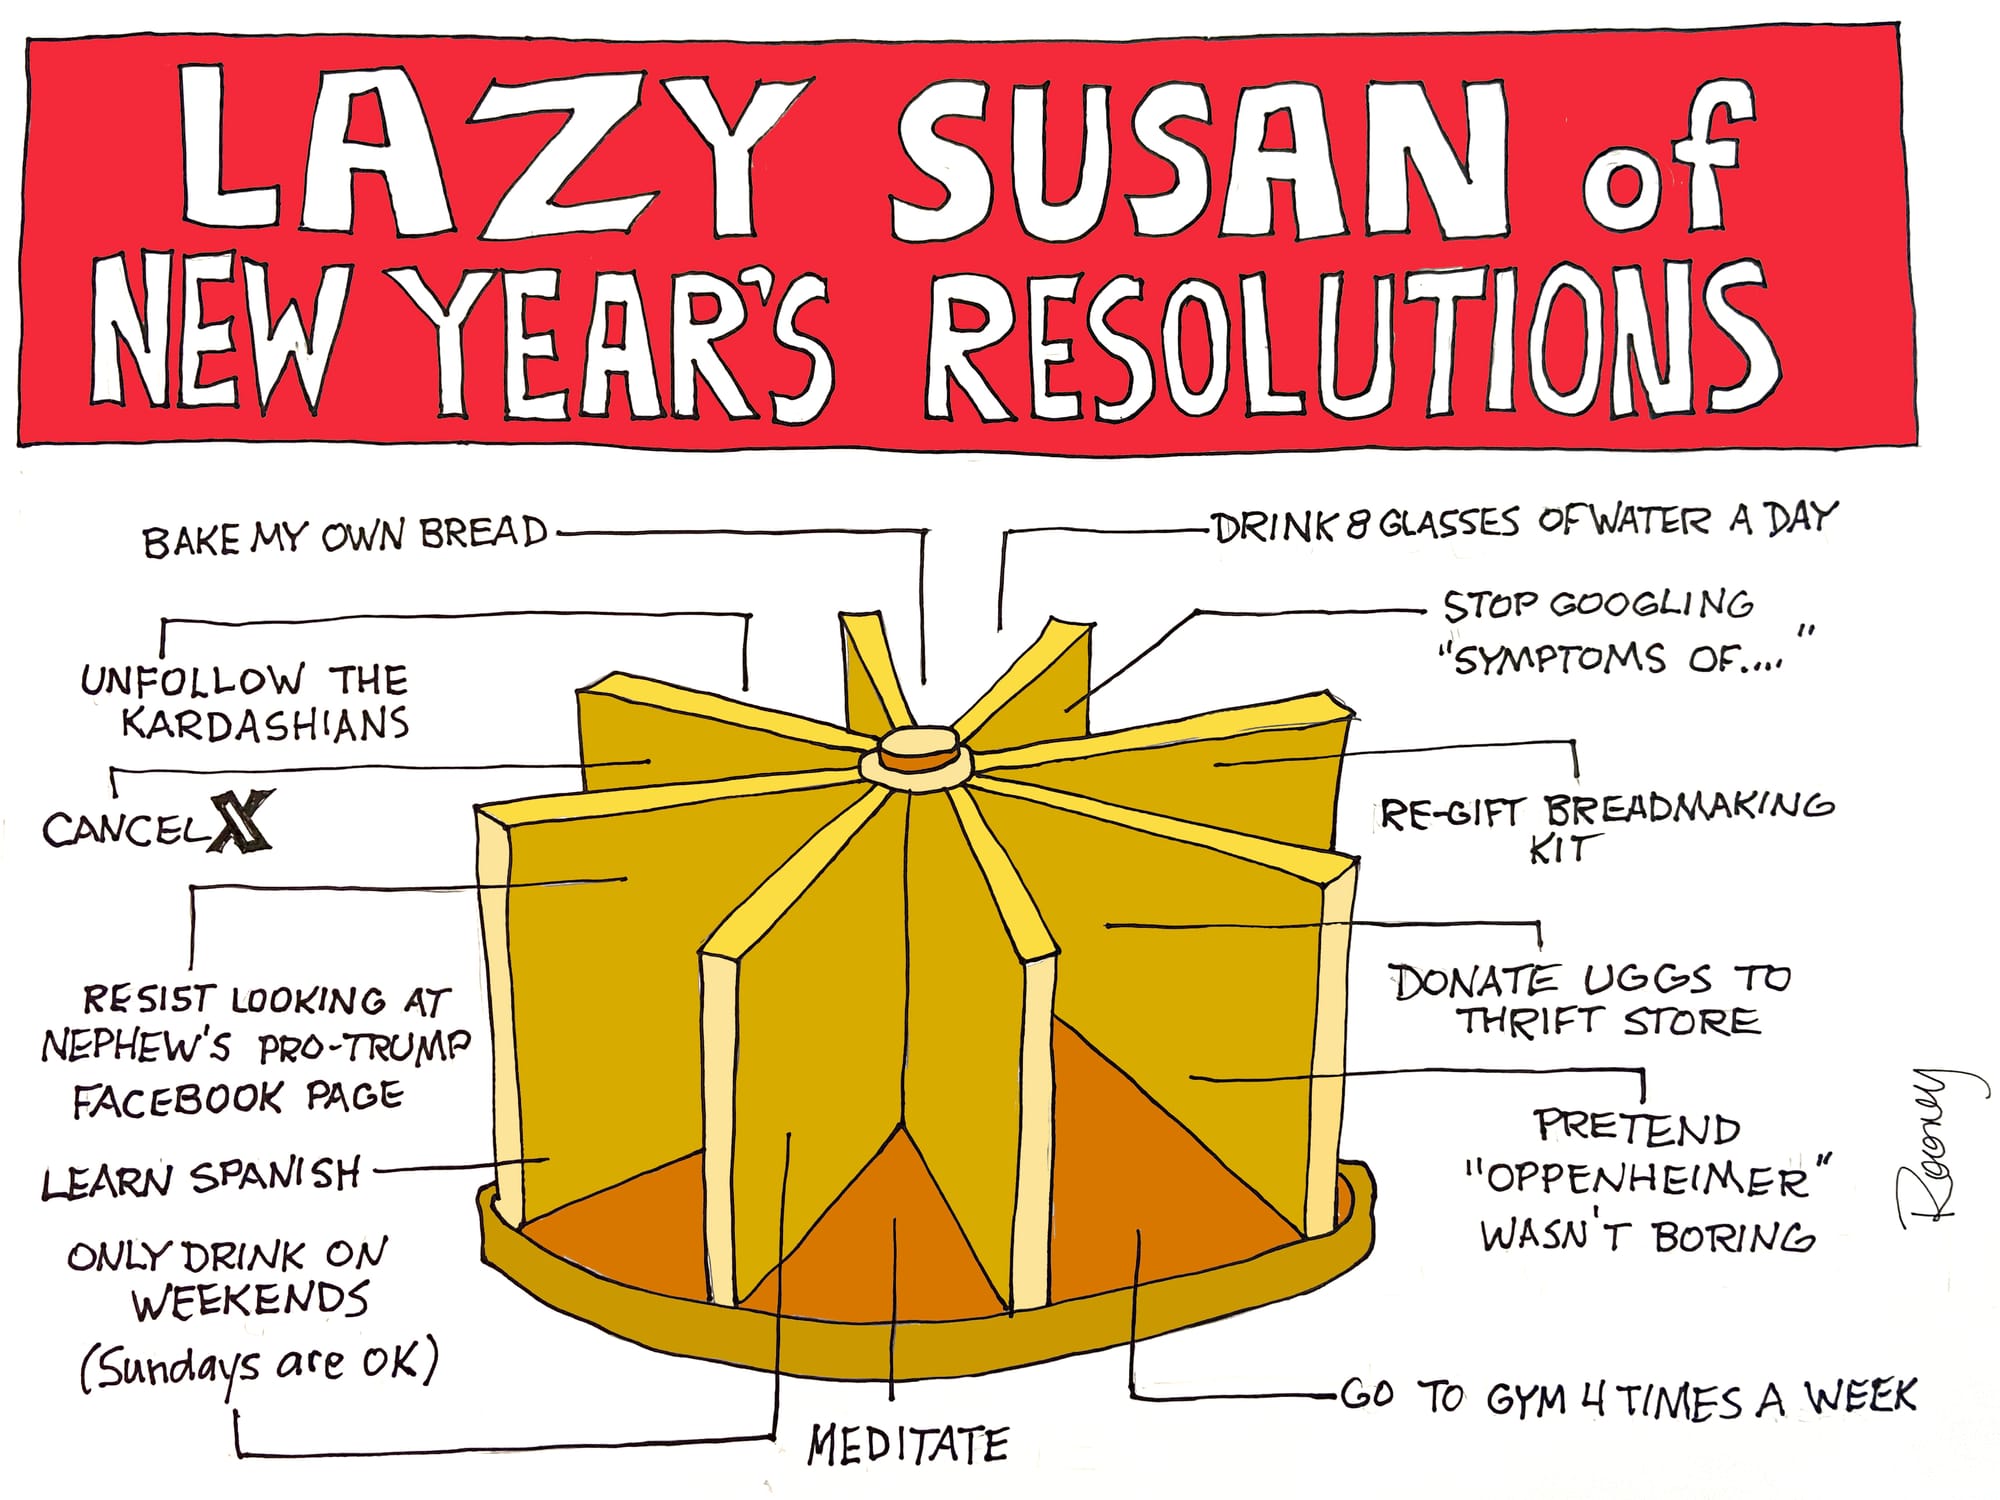 LAZY SUSAN of
NEW YEAR'S RESOLUTIONS
BAKE MY OWN BREAD
DRINK 8 GLASSES OF WATER A DAY
STOP GOOGLING
"SYMPTOMS OF...."
UNFOLLOW THE
KARDASHIANS
CANCEL X
RE-GIFT BREADMAKING
KIT
RESIST LOOKING AT
NEPHEW'S PRO-TRUMP
FACEBOOK PAGE
DONATE UGGS TO
THRIFT STORE
LEARN SPANISH
PRETEND
"OPPENHEIMER"
WASN'T BORING
ONLY DRINK ON
WEEKENDS
(Sundays are OK)
MEDITATE
GO TO GYM 4 TIMES A WEEK
Rooney